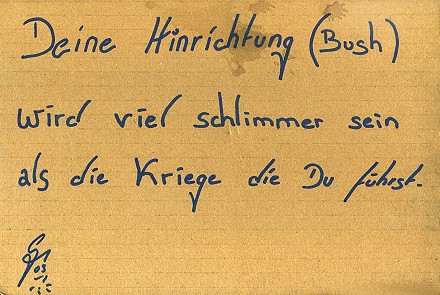 Deine Hinrichtung (Bush)
wird viel schlimmer sein
als die Kriege die Du führst.
03